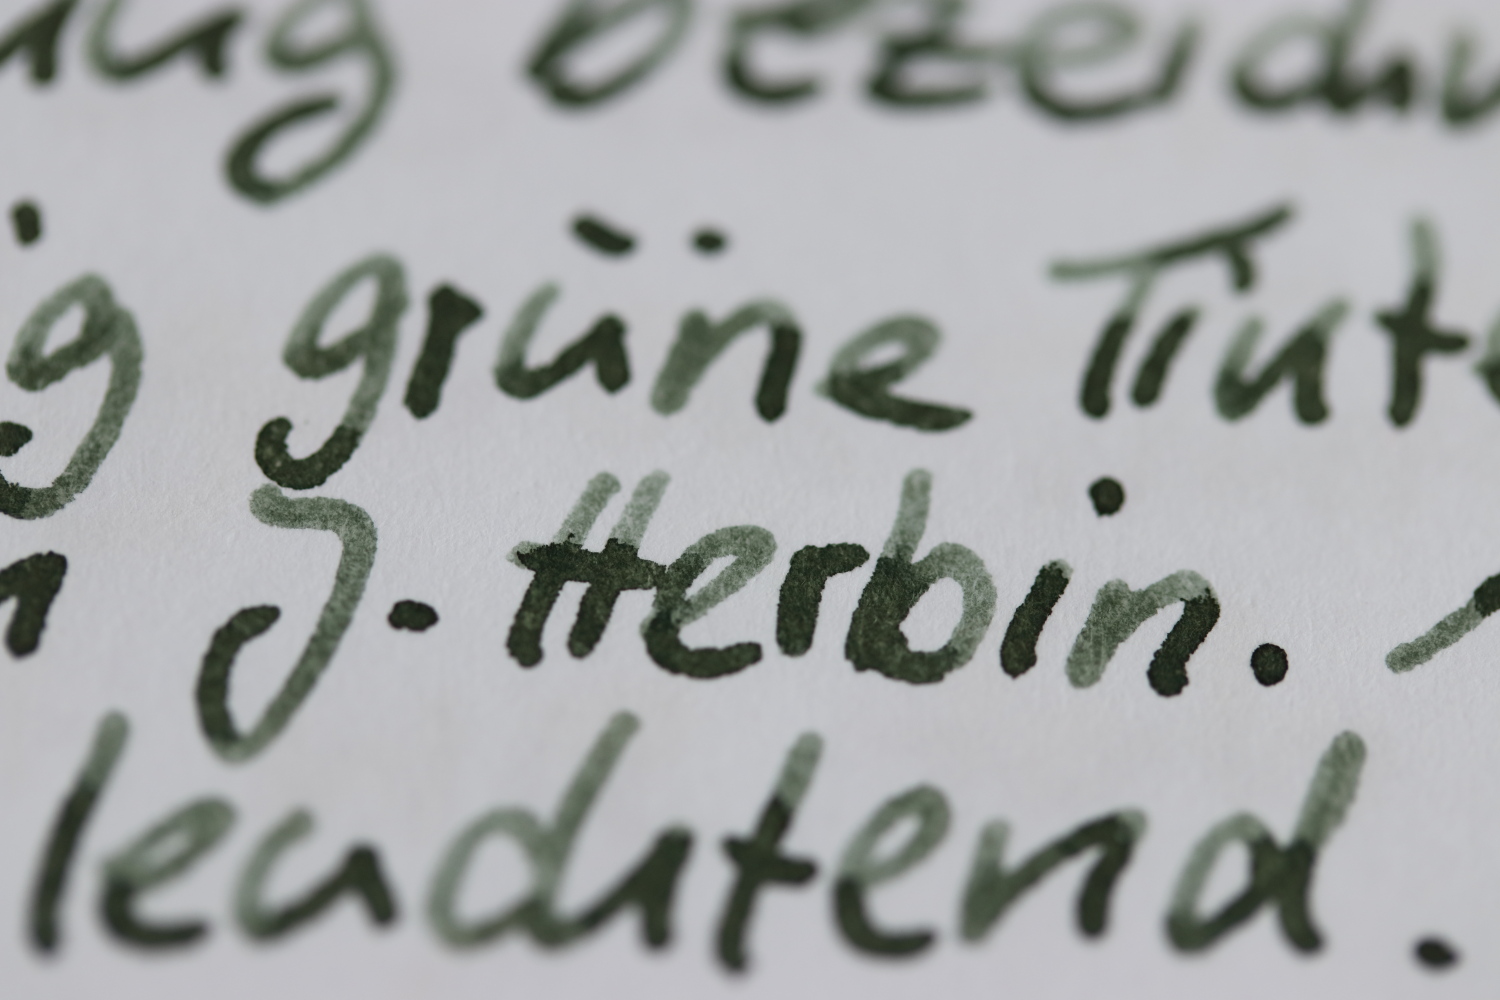 ung bezeichn
ig grüne Tinte
n J. Herbin.
leuchtend.